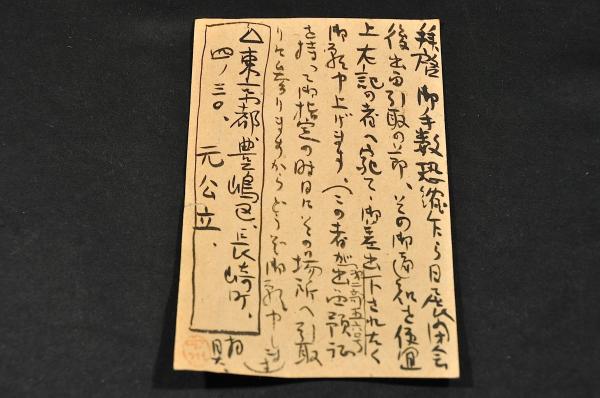 拝啓 御手数恐縮乍ら日展閉会
後出画引取の節、その御通知を便宜
上左記の者へ宛て、御差出下されたく
御願申上げます、(この者が出画預証
(第二部五六号)
を持って御指定の時日にその場所へ引取
りに参りますからどうぞ御願ひ申します)
敬具
△東京都豊嶋区、長崎町、
四ノ三〇、 元公立、